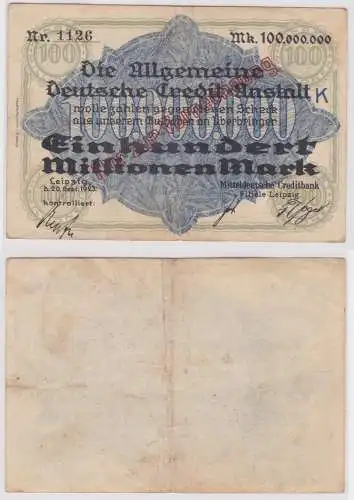 Nr. 1126 Mk. 100.000.000
100 100
Die Allgemeine
Deutsche Credit-Anstalt
wolle zahlen gegen diesen Scheck K
aus unserem Guthaben an Überbringer
Einhundert
Millionen Mark
Leipzig Mitteldeutsche Creditbank
d. 20. Sept. 1923. Filiale Leipzig
kontrolliert: